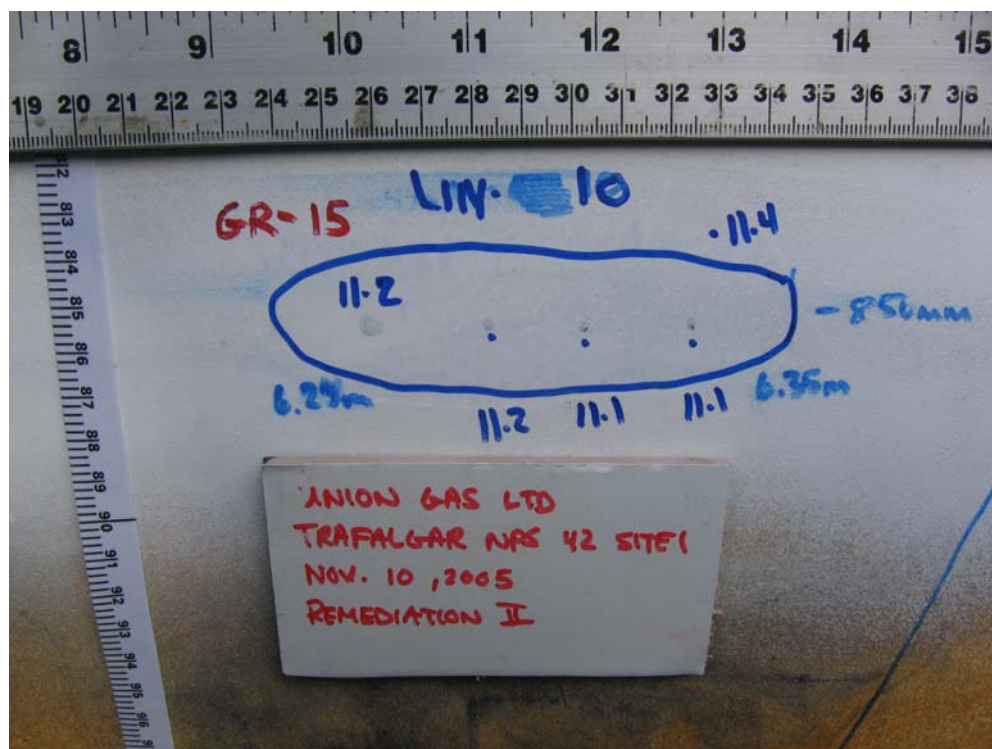 8 9 10 11 12 13 14 15
19 20 21 22 23 24 25 26 27 28 29 30 31 32 33 34 35 36 37 38
8|2
8|3
8|4
8|5
8|6
8|7
8|8
8|9
9|0
9|1
9|2
9|3
9|4
9|5
9|6
LIN. 10
GR-15
.11.4
11.2
- 850mm
6.24m
6.35m
11.2 11.1 11.1
UNION GAS LTD
TRAFALGAR NPS 42 SITE 1
NOV. 10, 2005
REMEDIATION II